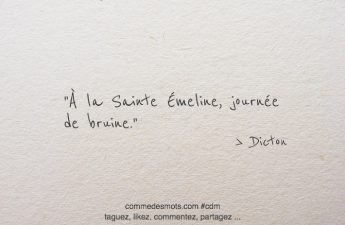 "À la Sainte Émeline, journée
de bruine."
> Dicton
commedesmots.com #cdm
taguez, likez, commentez, partagez ...